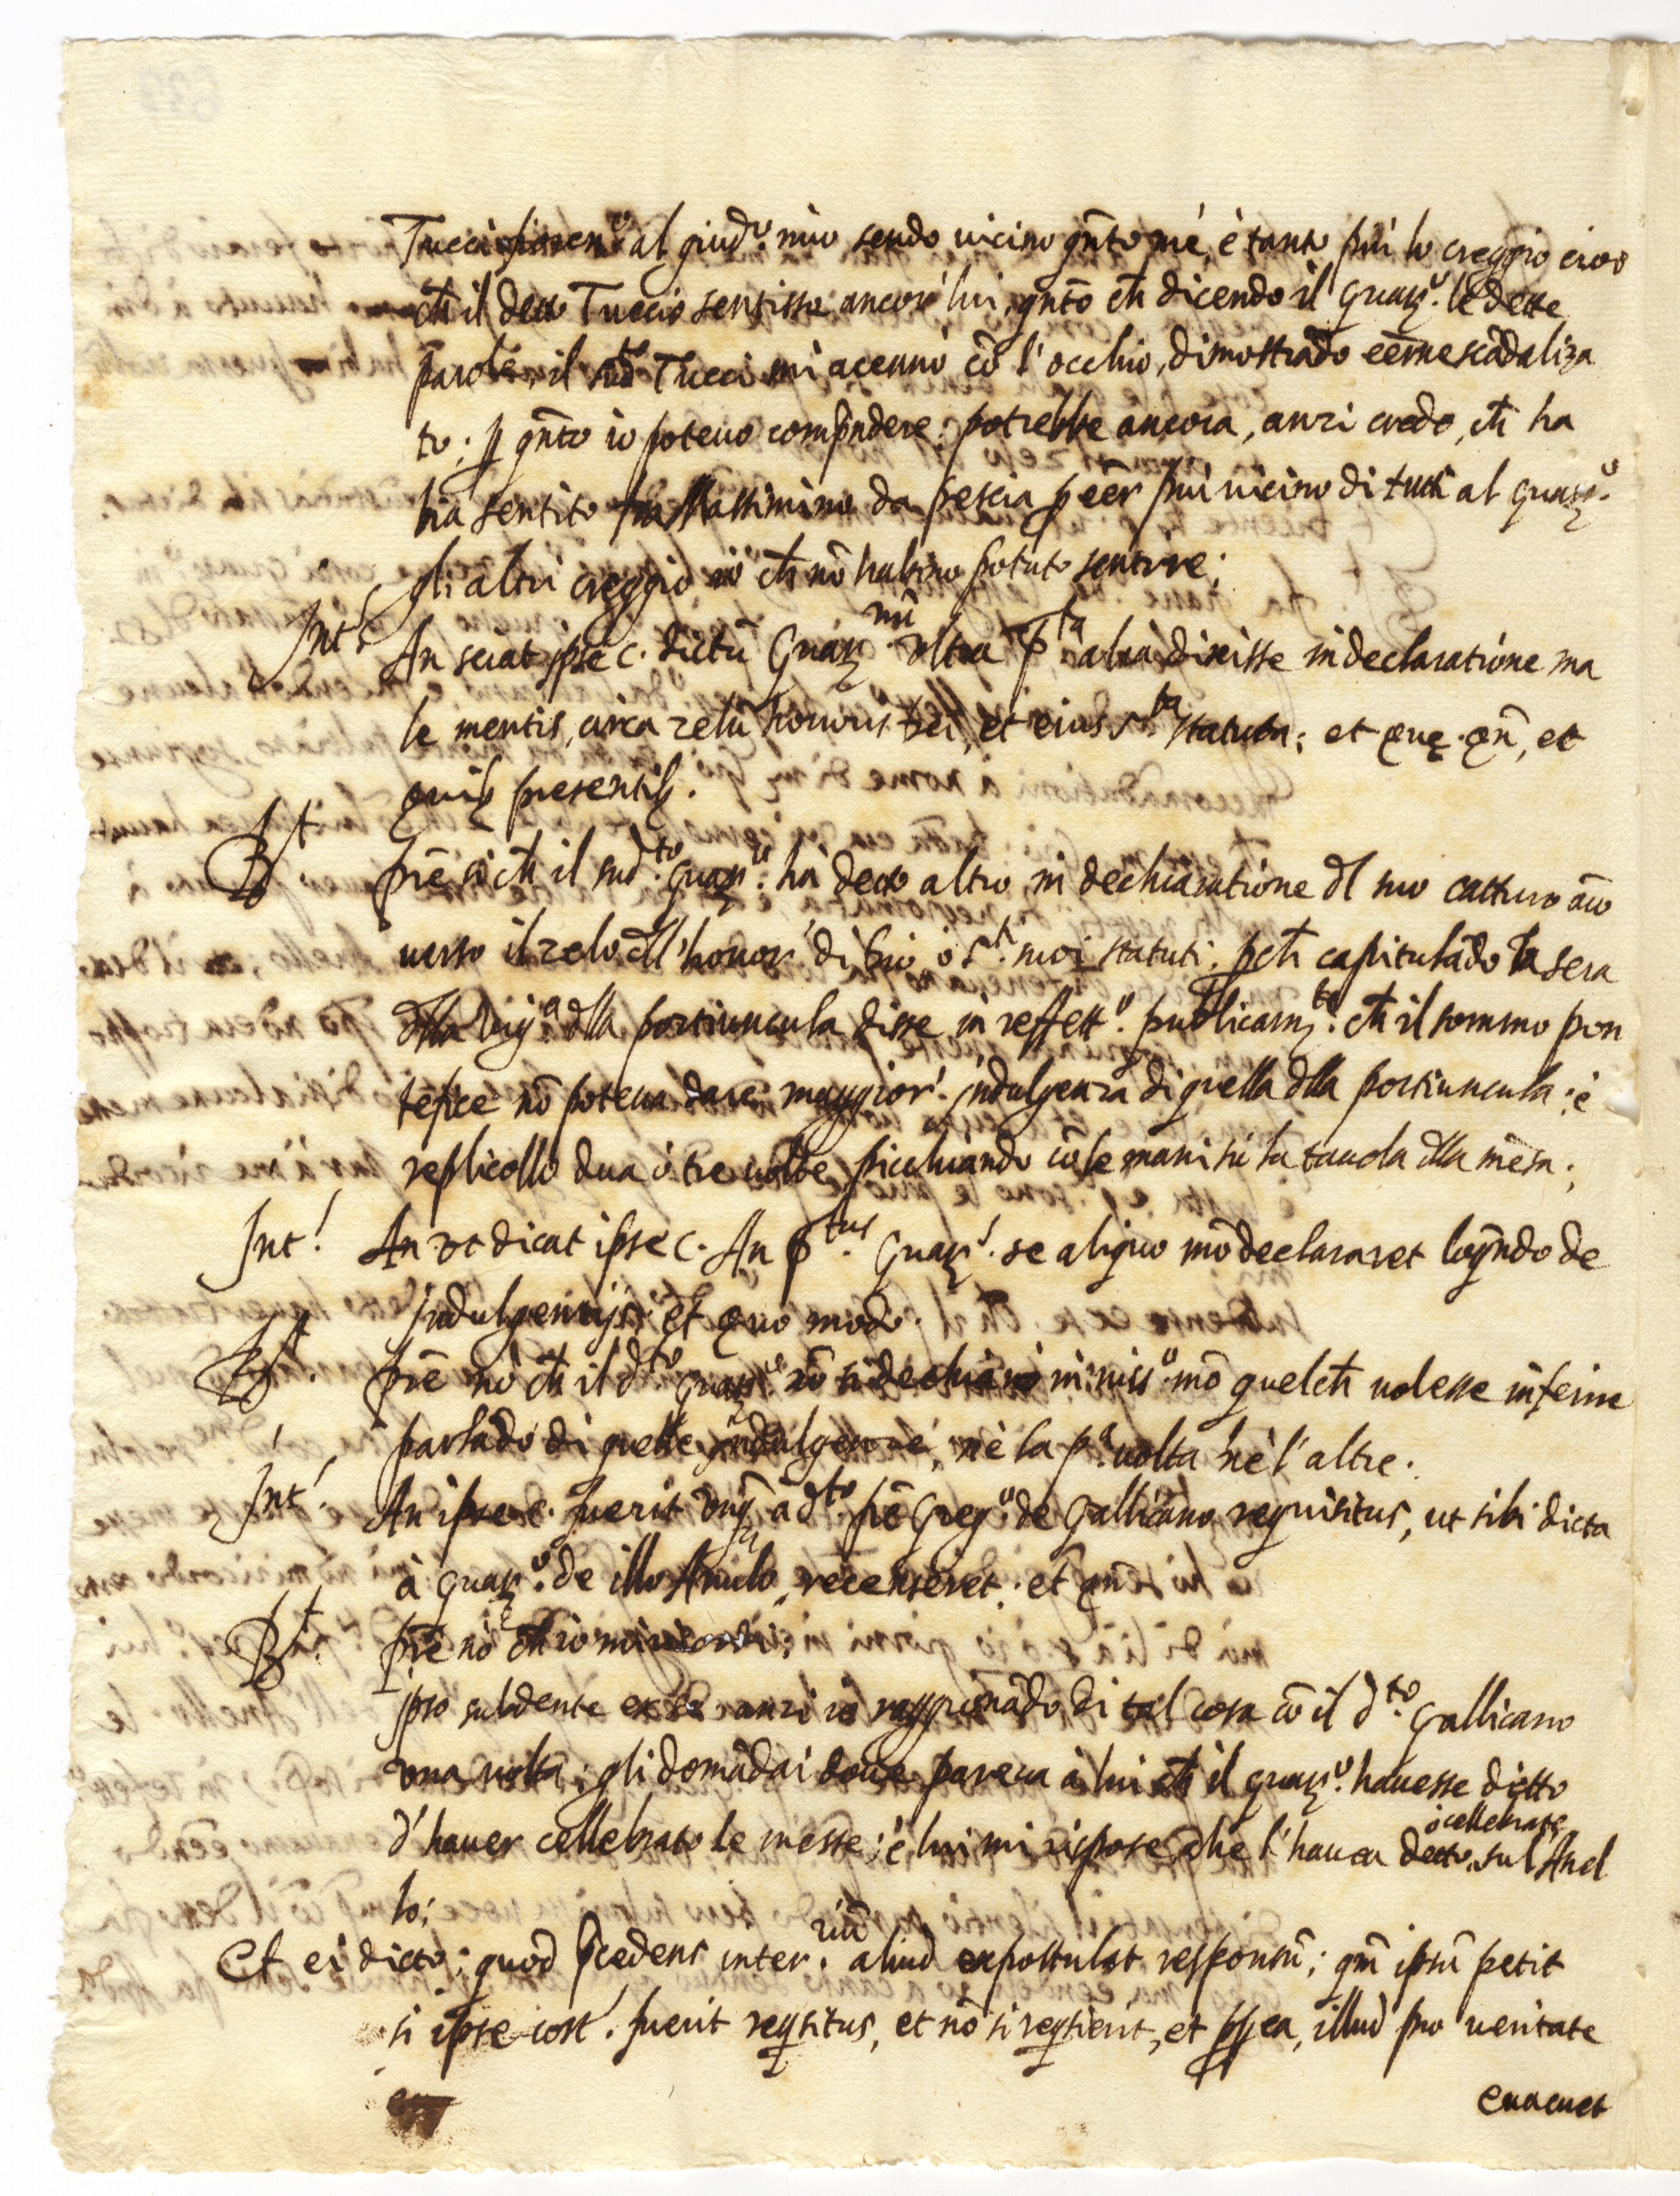 Tucci al giud.º mio sendo uicino qñto mé, è tanto piu lo creggio
ch̃ il detto Tuccio sentisse ancor' lui, qñto ch̃ dicendo il Guar.º le dette
parole, il sud.to Tucci mi acennò cõ l'occhio, dimostrãdo eẽrne scãdaliza
to; ꝑ qñto io poteuo comp̃ndere: potrebbe ancora, anzi credo, ch̃ ha
ha sentito fra Massimino da pescia ꝑ eẽr piu uicino di tutti al guar.º
gli altri creggio io ch̃ nõ habino potuto sentire;
Int.s An sciat ipse c. dictũ Guar.nũ ultra p̃.ta alia dixisse in declaratione ma
le mentis, circa zelũ honoris Dei, et eius S.ta statuta; et que. qñ, et
quib; presentib;.
R.t prẽ si ch̃ il sud.to Guar.º hà detto altro in dechiaratione dl suo cattiuo aĩo
uerso il zelo dll'honor' di Dio, ò S.ti suoi statuti. ꝑch̃ capitulãdo la sera
dlla uig.a dlla portiuncula disse in reffett.º publicam.te ch̃ il sommo pon
tefice nõ poteua dare maggior' indulgenza di quella dlla portiuncula; è
replicollo dua ò tre uolte picchiando cõ le mani sù la tauola dlla mẽsa;
Int.! An ut dicat ipse c. An p̃.tus Guar.s se aliquo mõ declararet loq̃ndo de
indulgentijs; et quo modo.
R.t prẽ nò ch̃ il d.to Guar.º nõ si dechiarò in niss.º mõ quel ch̃ uolesse inferire
parlãdo di quelle indulgenze, nè la p.a uolta nè l'altre.
Int.! An ipse c. fuerit ã d.to prẽ Greg.º de Gallicano requisitus, ut sibi dicta
à Guar.º de illo Anulo, recenseret; et qñ
R.t prẽ nò ch̃ io mi ricordi;
ipso subdente ex se: anzi io raggionãdo di tal cosa cõ il d.to Gallicano
una uolta; gli domãdai doue pareua à lui ch̃ il guar.º hauesse ditto
d'hauer cellebrato le messe; è lui mi rispose, che l'hauea detto, ò cellebrate sul Anel
lo;
Et ei dicto; quod p̃cedens inter.riũ aliud expostulat responsũ; qm̃ ipsũ petit
si ipse cost. fuerit req̃situs, et nõ si req̃sierit, et ꝓꝑea, illud pro ueritate
euacuet